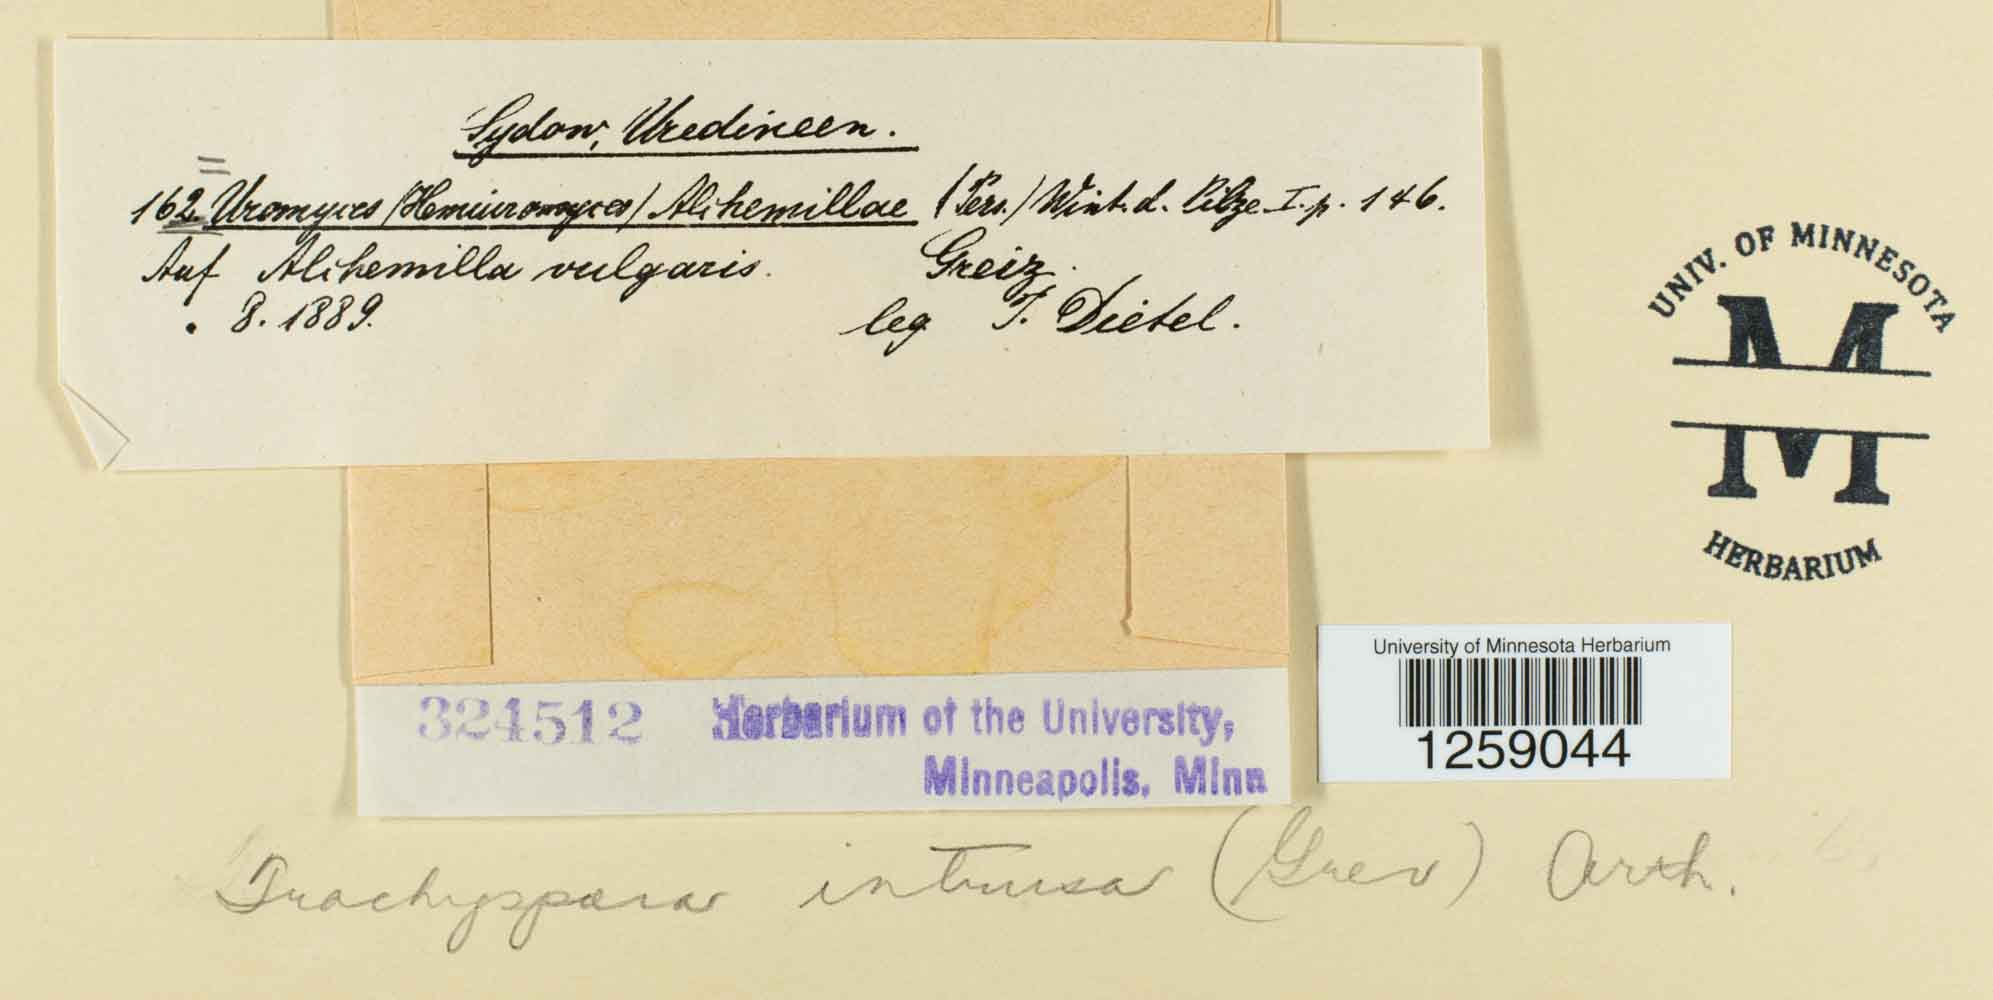 Sydow, Uredineen.
162 Uromyces (Hemiuromyces) Alchemillae (Pers.) Wint. d. Pilze I. p. 146.
Auf Alchemilla vulgaris. Greiz.
8. 1889. leg P. Dietel.
UNIV. OF MINNESOTA
M
HERBARIUM
University of Minnesota Herbarium
1259044
324512 Herbarium of the University,
Minneapolis, Minn
Trachyspora intrusa (Grev) Arth.